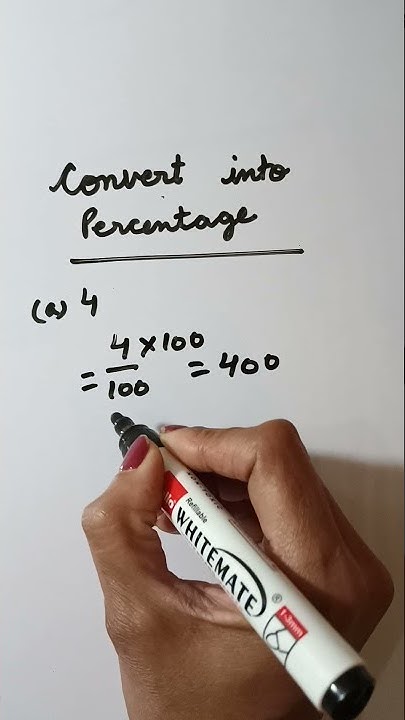 Convert into
Percentage
(a) 4
= 4/100 × 100 = 400
Refillable
WHITEMATE ®
1-3mm